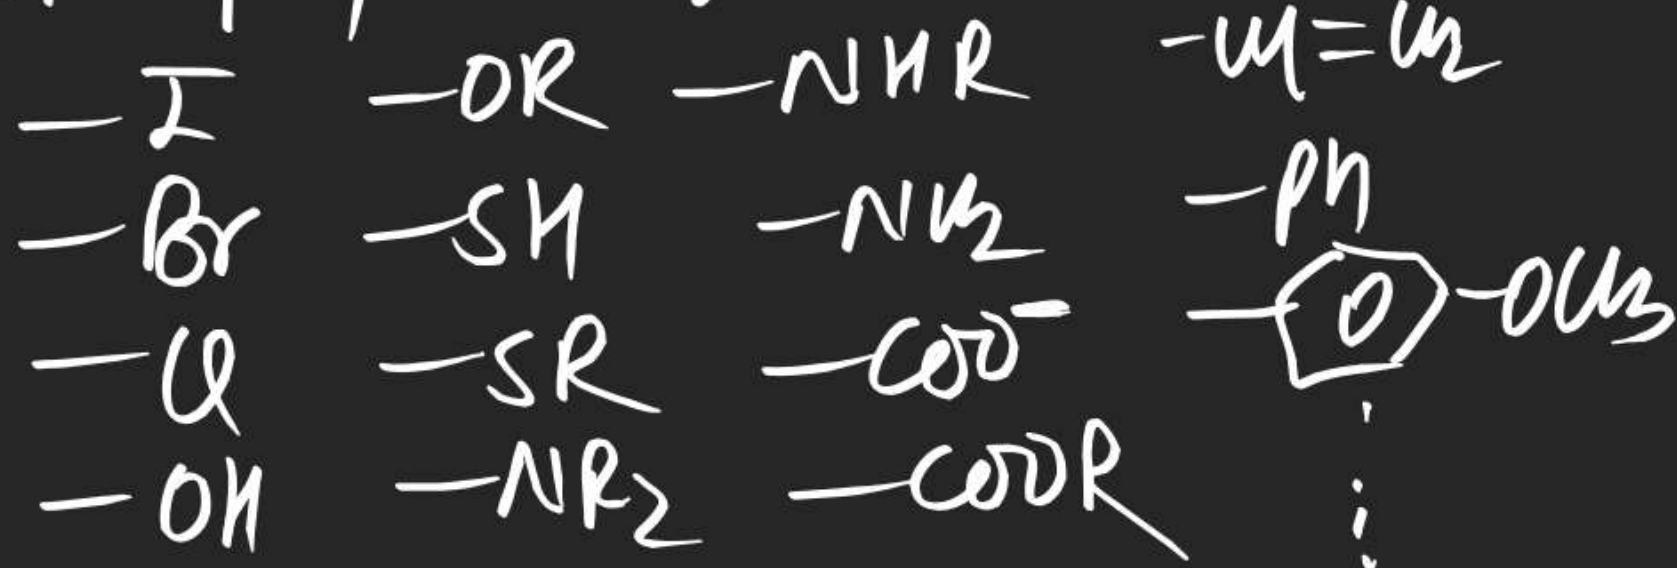 —I —OR —NHR —CH=CH2
—Br —SH —NH2 —Ph
—Cl —SR —COO⁻ —OCH3
—OH —NR2 —COOR